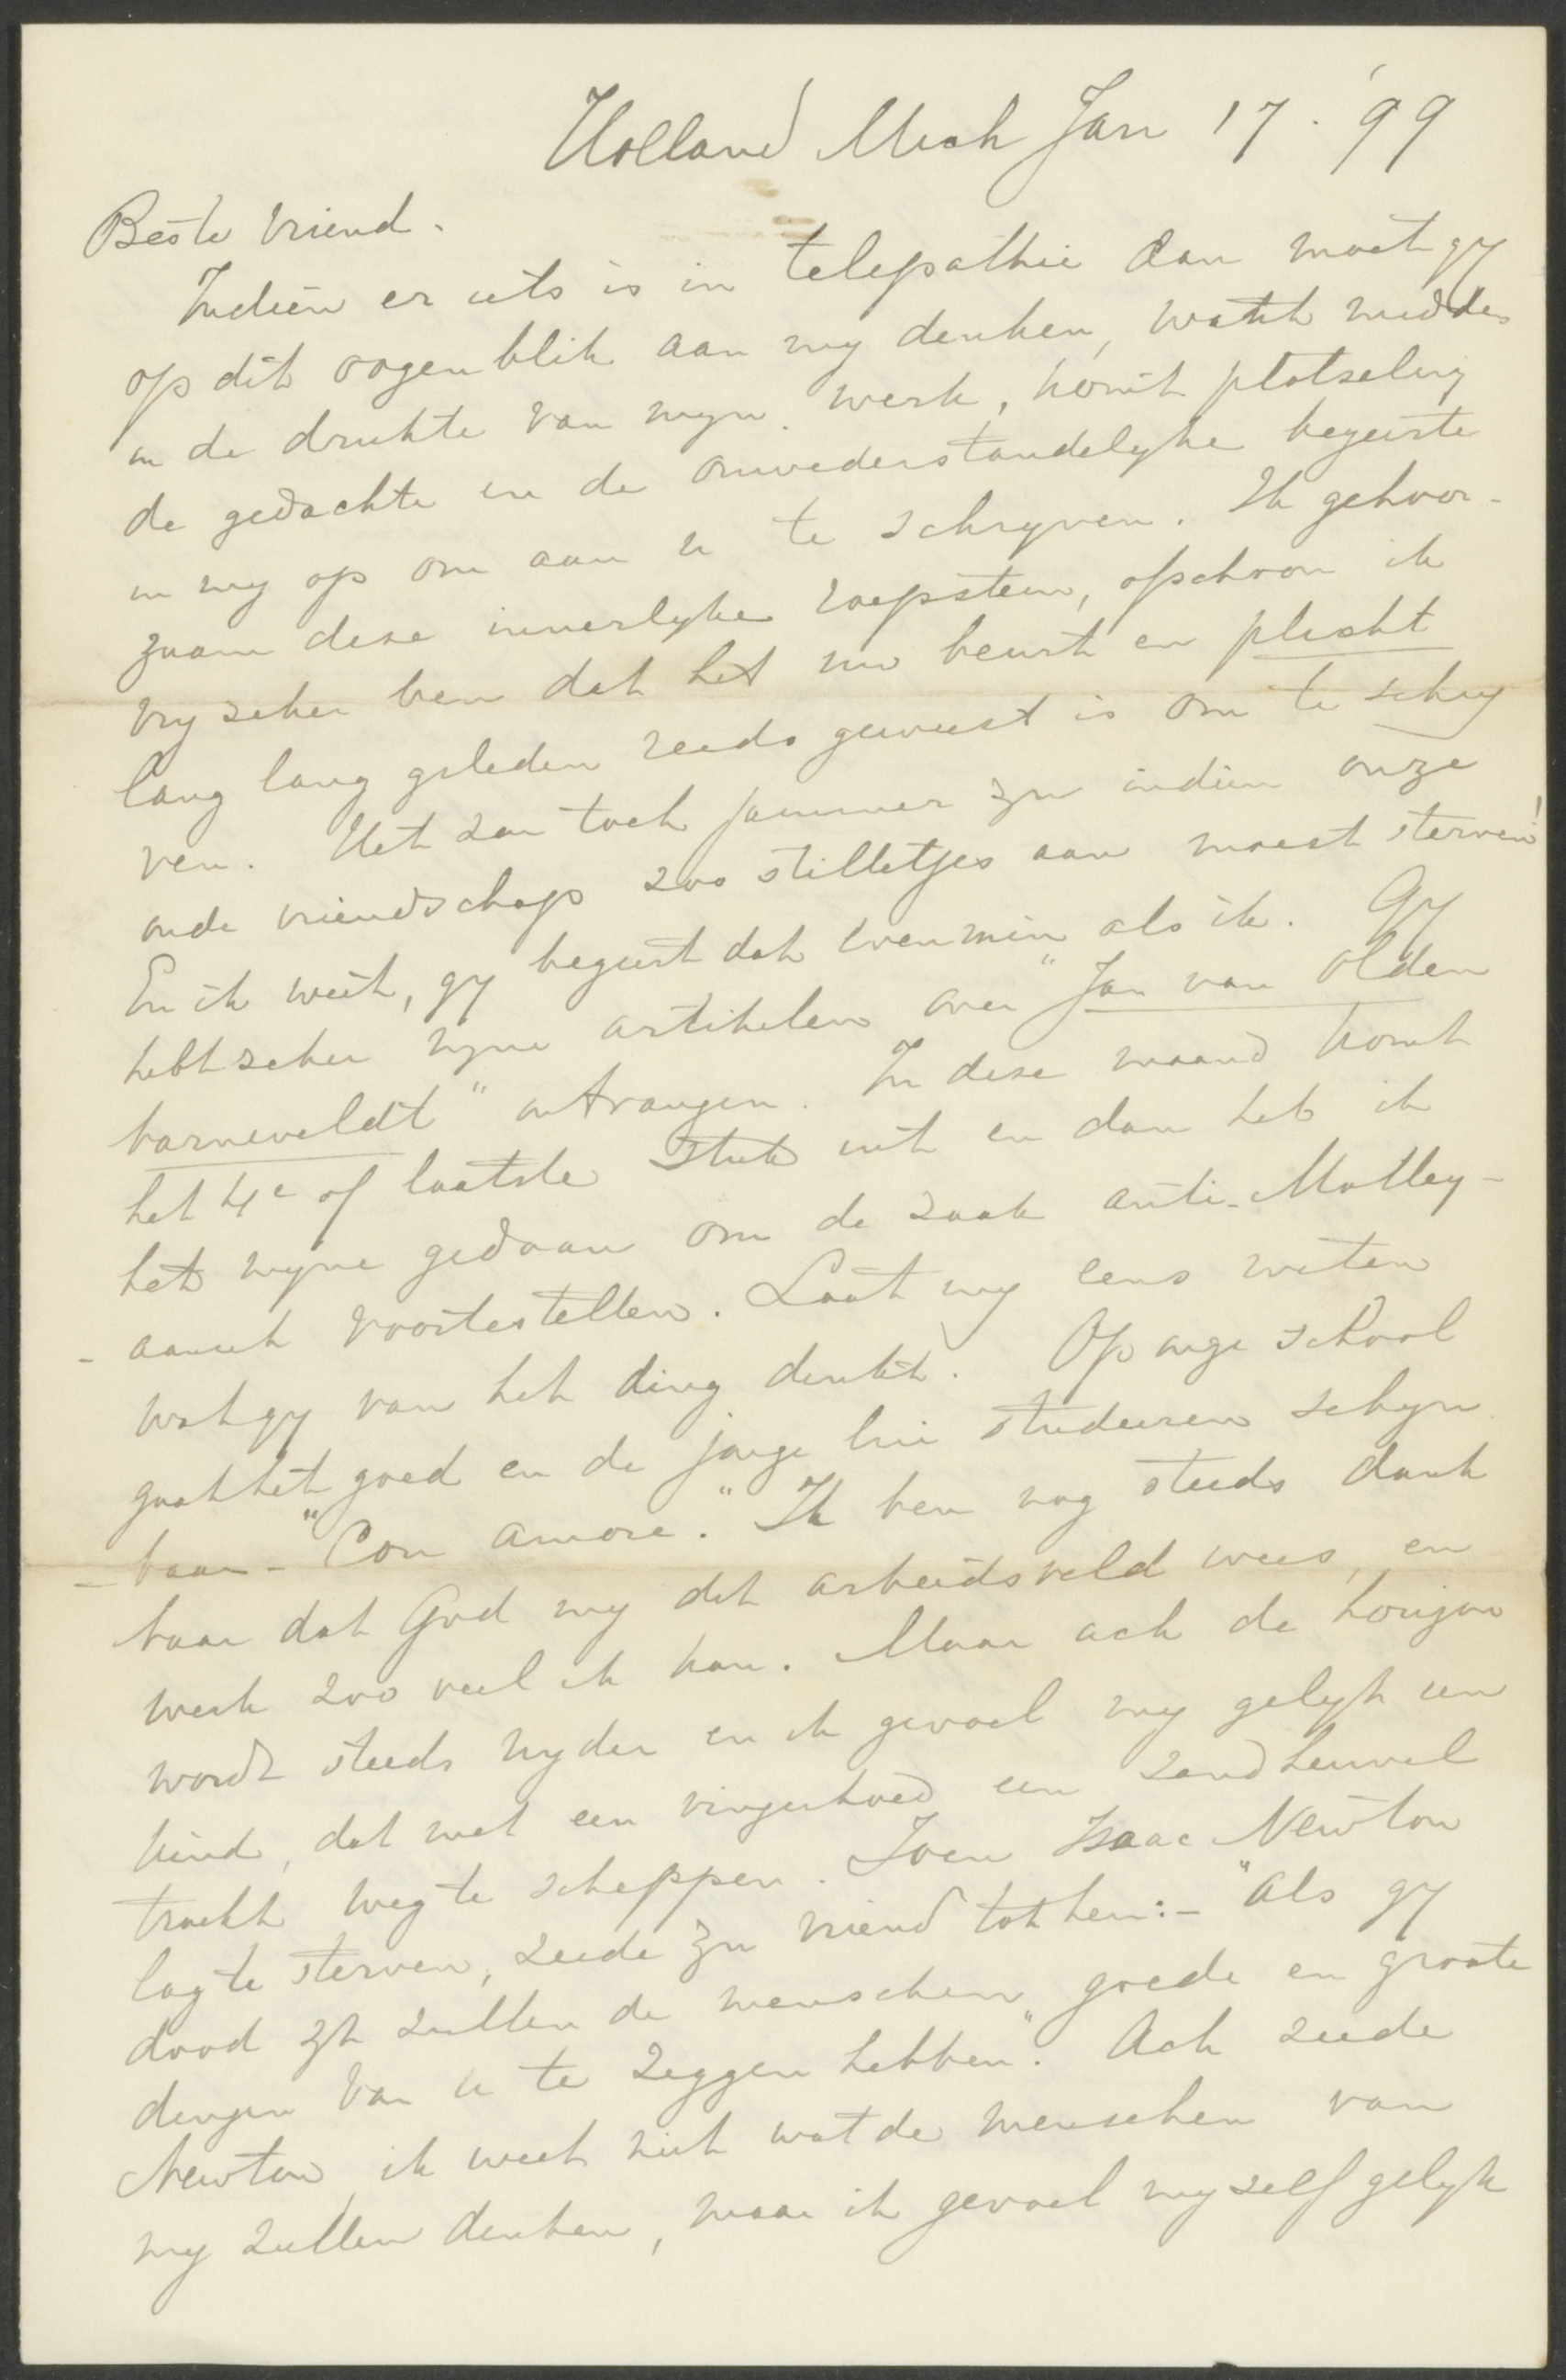 Holland Mich Jan 17. '99
Beste Vriend.
Indien er iets is in telepathie dan moet gy
op dit oogenblik aan my denken, want midden
in de drukte van myn werk, komt plotseling
de gedachte en de onwederstandelyke begeerte
in my op om aan u te schryven. Ik gehoor-
zaam deze innerlyke roepstem, ofschoon ik
vry zeker ben dat het uw beurt en plicht
lang lang geleden reeds geweest is om te schry
ven. Het zou toch jammer zyn indien onze
oude vriendschap zoo stilletjes aan moest sterven!
En ik weet, gy begeert dat evenmin als ik. Gy
hebt zeker myne artikelen over "Jan van Olden
barneveldt" ontvangen. In deze maand komt
het 4e of laatste stuk uit en dan heb ik
het myne gedaan om de zaak anti-Motley-
- aansch voortestellen. Laat my eens weten
wat gy van het ding denkt. Op onze school
gaat het goed en de jonge lui studeeren schyn
- baar - "Con amore." Ik ben nog steeds dank
baar dat God my dit arbeidsveld wees, en
werk zoo veel ik kan. Maar ach de horizon
wordt steeds wyder en ik gevoel my gelyk een
kind, dat met een vingerhoed een zandheuvel
tracht weg te scheppen. Toen Isaac Newton
lag te sterven, zeide zyn vriend tot hem:- "Als gy
dood zyt zullen de menschen goede en groote
dingen van u te zeggen hebben". Ach zeide
Newton, ik weet niet wat de menschen van
my zullen denken, maar ik gevoel myzelf gelyk